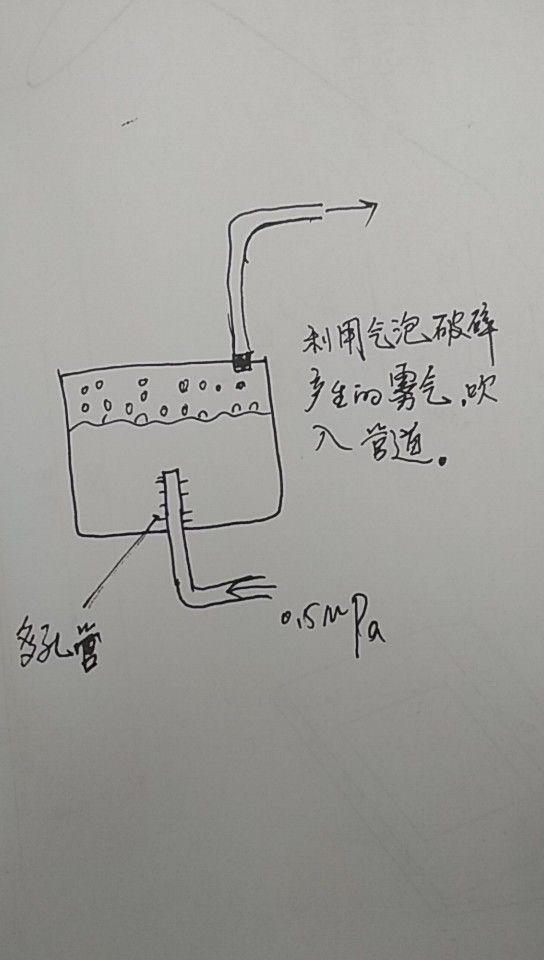 利用气泡破碎
产生的雾气，吹
入管道。
0.5MPa
多孔管